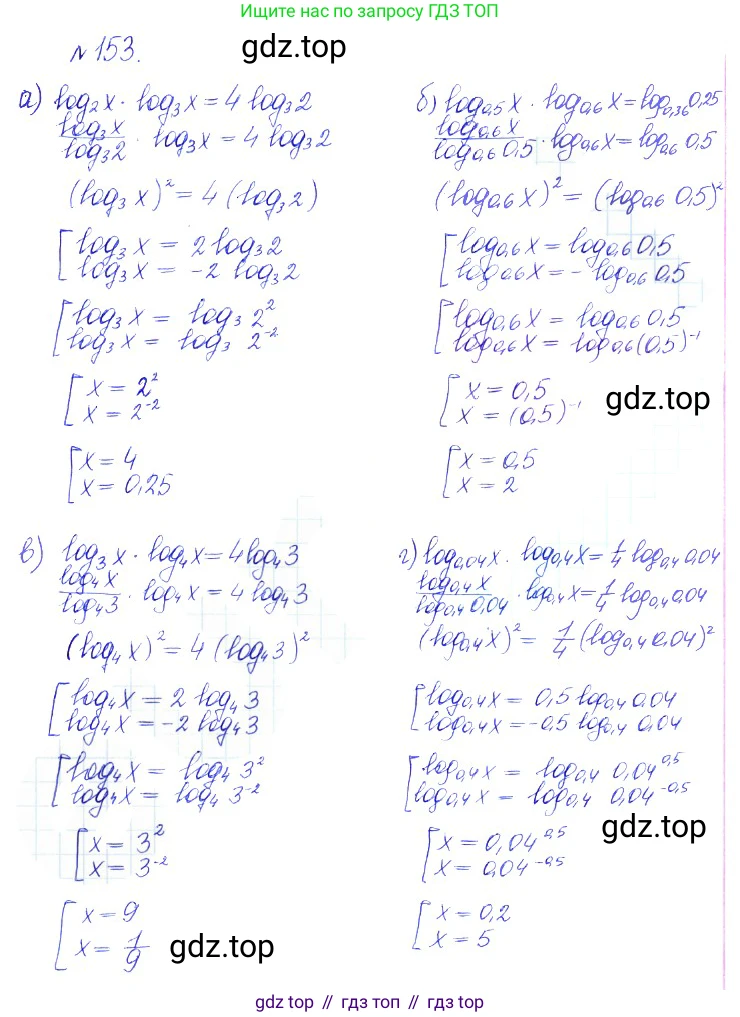 Ищите нас по запросу ГДЗ ТОП
№153.
gdz.top
а) log₂x · log₃x = 4 log₃2
log₃x / log₃2 · log₃x = 4 log₃2
(log₃x)² = 4 (log₃2)
[ log₃x = 2 log₃2
log₃x = -2 log₃2
[ log₃x = log₃ 2²
log₃x = log₃ 2⁻²
[ x = 2²
x = 2⁻²
[ x = 4
x = 0,25
б) log₀,₅x · log₀,₆x = log₀,₃₆0,25
log₀,₆x / log₀,₆0,5 · log₀,₆x = log₀,₆ 0,5
(log₀,₆x)² = (log₀,₆ 0,5)²
[ log₀,₆x = log₀,₆ 0,5
log₀,₆x = -log₀,₆ 0,5
gdz.top
[ log₀,₆x = log₀,₆ 0,5
log₀,₆x = log₀,₆(0,5)⁻¹
[ x = 0,5
x = (0,5)⁻¹
gdz.top
[ x = 0,5
x = 2
в) log₃x · log₄x = 4log₄3
log₄x / log₄3 · log₄x = 4 log₄3
(log₄x)² = 4 (log₄3)²
[ log₄x = 2 log₄3
log₄x = -2 log₄3
[ log₄x = log₄ 3²
log₄x = log₄ 3⁻²
[ x = 3²
x = 3⁻²
[ x = 9
x = 1/9
gdz.top
г) log₀,₀₄x · log₀,₄x = 1/4 log₀,₄ 0,04
log₀,₄x / log₀,₄0,04 · log₀,₄x = 1/4 log₀,₄ 0,04
(log₀,₄x)² = 1/4 (log₀,₄ 0,04)²
[ log₀,₄x = 0,5 log₀,₄ 0,04
log₀,₄x = -0,5 log₀,₄ 0,04
[ log₀,₄x = log₀,₄ 0,04^0,5
log₀,₄x = log₀,₄ 0,04^-0,5
[ x = 0,04^0,5
x = 0,04^-0,5
gdz.top
[ x = 0,2
x = 5
gdz top // гдз топ // gdz.top